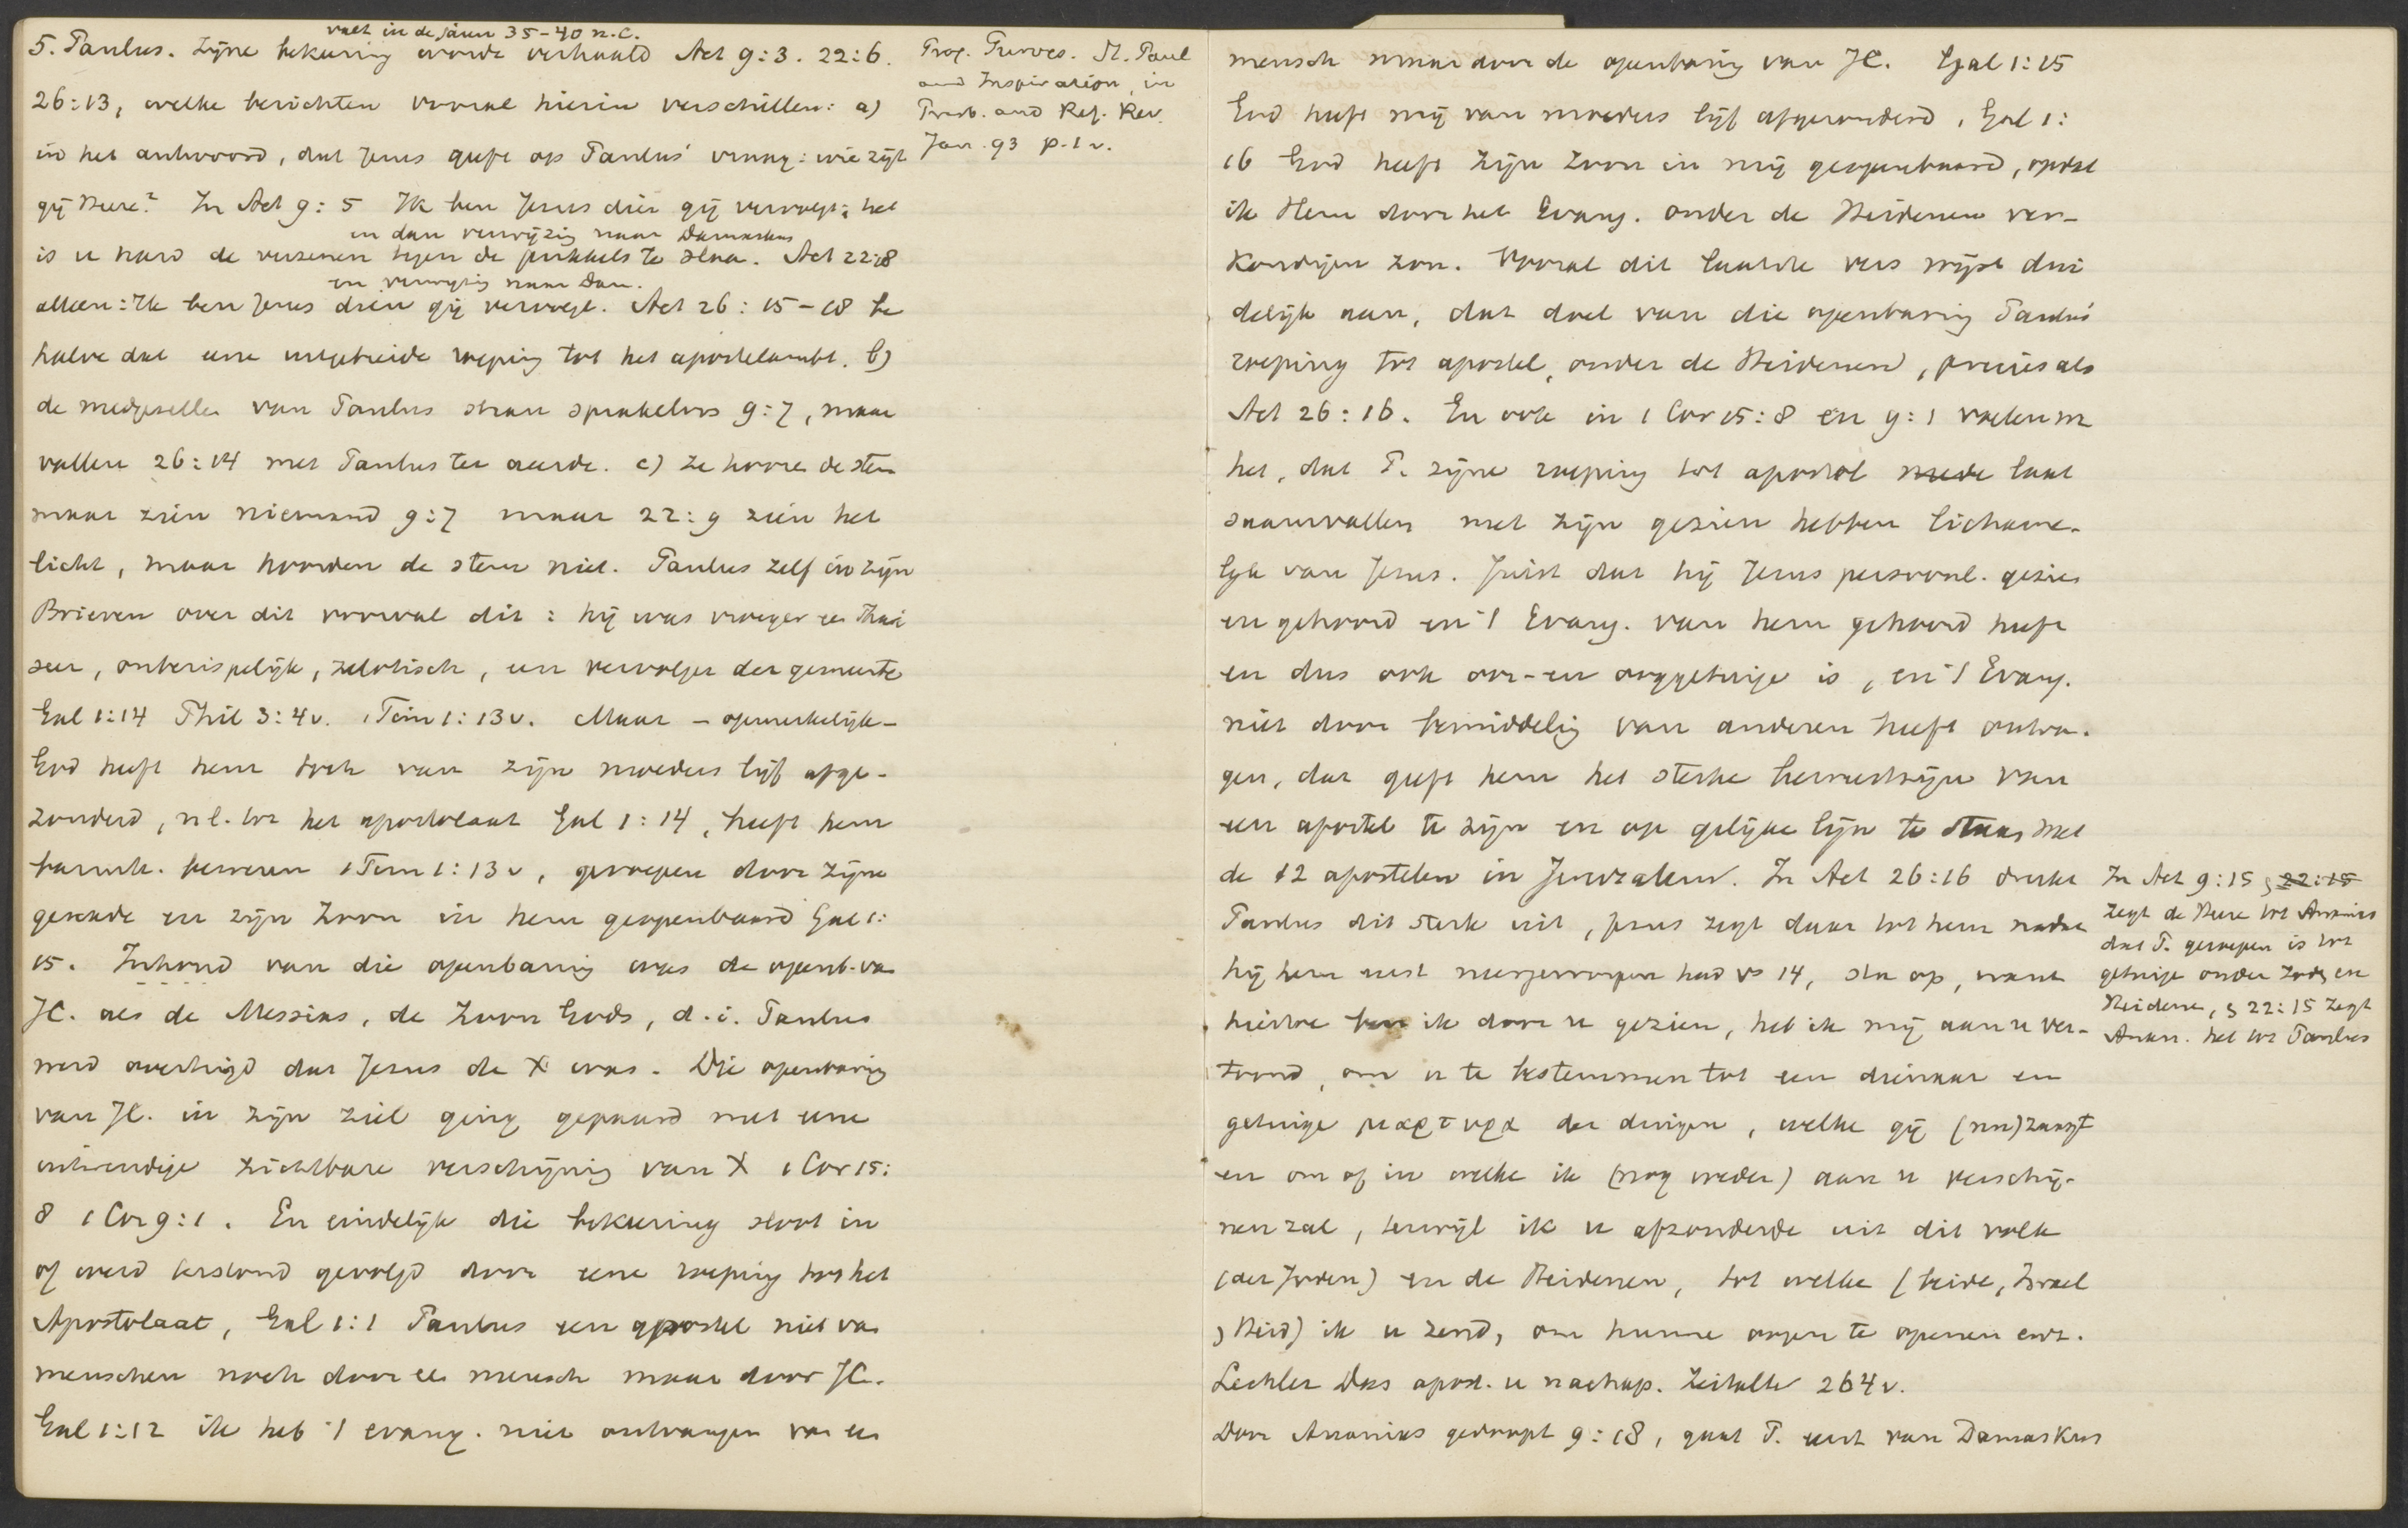 valt in de jaren 35-40 n.C.
5. Paulus. Zijne bekering wordt verhaald Act 9:3. 22:6.
26:13, welke berichten vooral hierin verschillen: a)
in het antwoord, dat Jezus geeft op Paulus' vraag: wie zijt
gij Heere? In Act 9:5 Ik ben Jezus dien gij vervolgt; het
en dan verwijzig naar Damaskus
is u hard de verzenen tegen de prikkels te slaa. Act 22:8
en verwijzig naar Dam.
alleen: Ik ben Jezus dien gij vervolgt. Act 26:15-18 be
halve dat eene uitgebreide roeping tot het apostelambt. b)
de medgezellen van Paulus staan sprakeloos 9:7, maar
vallen 26:14 met Paulus ter aarde. c) Ze hooren de stem
maar zien niemand 9:7 maar 22:9 zien het
licht, maar hoorden de stem niet. Paulus zelf in zijn
Brieven over dit voorval dit: hij was vroeger ee Phari
seer, onberispelijk, zelotisch, een vervolger der gemeente
Gal 1:14 Phil 3:4v. 1 Tim 1:13v. Maar - opmerkelijk -
God heeft hem toch van zijn moeders lijf afge-
zonderd, nl. tot het apostolaat Gal 1:14, heeft hem
barmh. bewezen 1 Tim 1:13v, geroepen door zijne
genade en zijn Zoon in hem geopenbaard Gal 1:
15. Inhoud van die openbaring was de openb. va
JC. als de Messias, de Zoon Gods, d.i. Paulus
werd overtuigd dat Jezus de X was. Die openbaring
van JC. in zijn ziel ging gepaard met eene
uitwendige zichtbare verschijning van X 1 Cor 15:
8 1 Cor 9:1. En eindelijk die bekeering sloot in
of werd terstond gevolgd door eene roeping tot het
Apostolaat, Gal 1:1 Paulus een apostel niet va
menschen noch door ee mensch maar door JC.
Gal 1:12 ik heb 't evang. niet ontvangen van ee
Prof. Purves. St. Paul
and Inspiration, in
Presb. and Ref. Rev.
Jan. 93 p.1v.
mensch maar door de openbaring van JC. Gal 1:15
God heeft mij van moeders lijf afgezonderd, Gal 1:
16 God heeft zijn Zoon in mij geopenbaard, opdat
ik Hem door het Evang. onder de Heidenen ver-
kondigen zou. Vooral dit laatste vers wijst dui
delijk aan, dat doel van die openbaring Paulus'
roeping tot apostel, onder de Heidenen, precies als
Act 26:16. En ook in 1 Cor 15:8 en 9:1 voelen we
het, dat P. zijne roeping tot apostel mede laat
saamvallen met zijn gezien hebben lichame-
lijk van Jezus. Juist dat hij Jezus persoonl. gezien
en gehoord en 't Evang. van hem gehoord heeft
en dus ook oor- en ooggetuige is, en 't Evang.
niet door bemiddelig van anderen heeft ontva-
gen, dat geeft hem het sterke bewustzijn van
een apostel te zijn en op gelijke lijn te staan met
de 12 apostelen in Jeruzalem. In Act 26:16 drukt
Paulus dit sterk uit, Jezus zegt daar tot hem nadat
hij hem eerst neergeworpen had vs 14, sta op, want
hiertoe ben ik door u gezien, heb ik mij aan u ver-
toond, om u te bestemmen tot een dienaar en
getuige μαρτυρα der dingen, welke gij (nu) zaagt
en om of in welke ik (nog weder) aan u verschij-
nen zal, terwijl ik u afzonderde uit dit volk
(der Joden) en de Heidenen, tot welke (beide, Israel
, Heid) ik u zend, om hunne oogen te openen enz.
Lechler Das apost. u nachap. Zeitalter 264v.
Door Ananias gedoopt 9:18, gaat P. eerst van Damaskus
In Act 9:15, 22:15
zegt de Heere tot Ananias
dat P. geroepen is tot
getuige onder Joden en
Heidene, 22:15 zegt
Anan. het tot Paulus